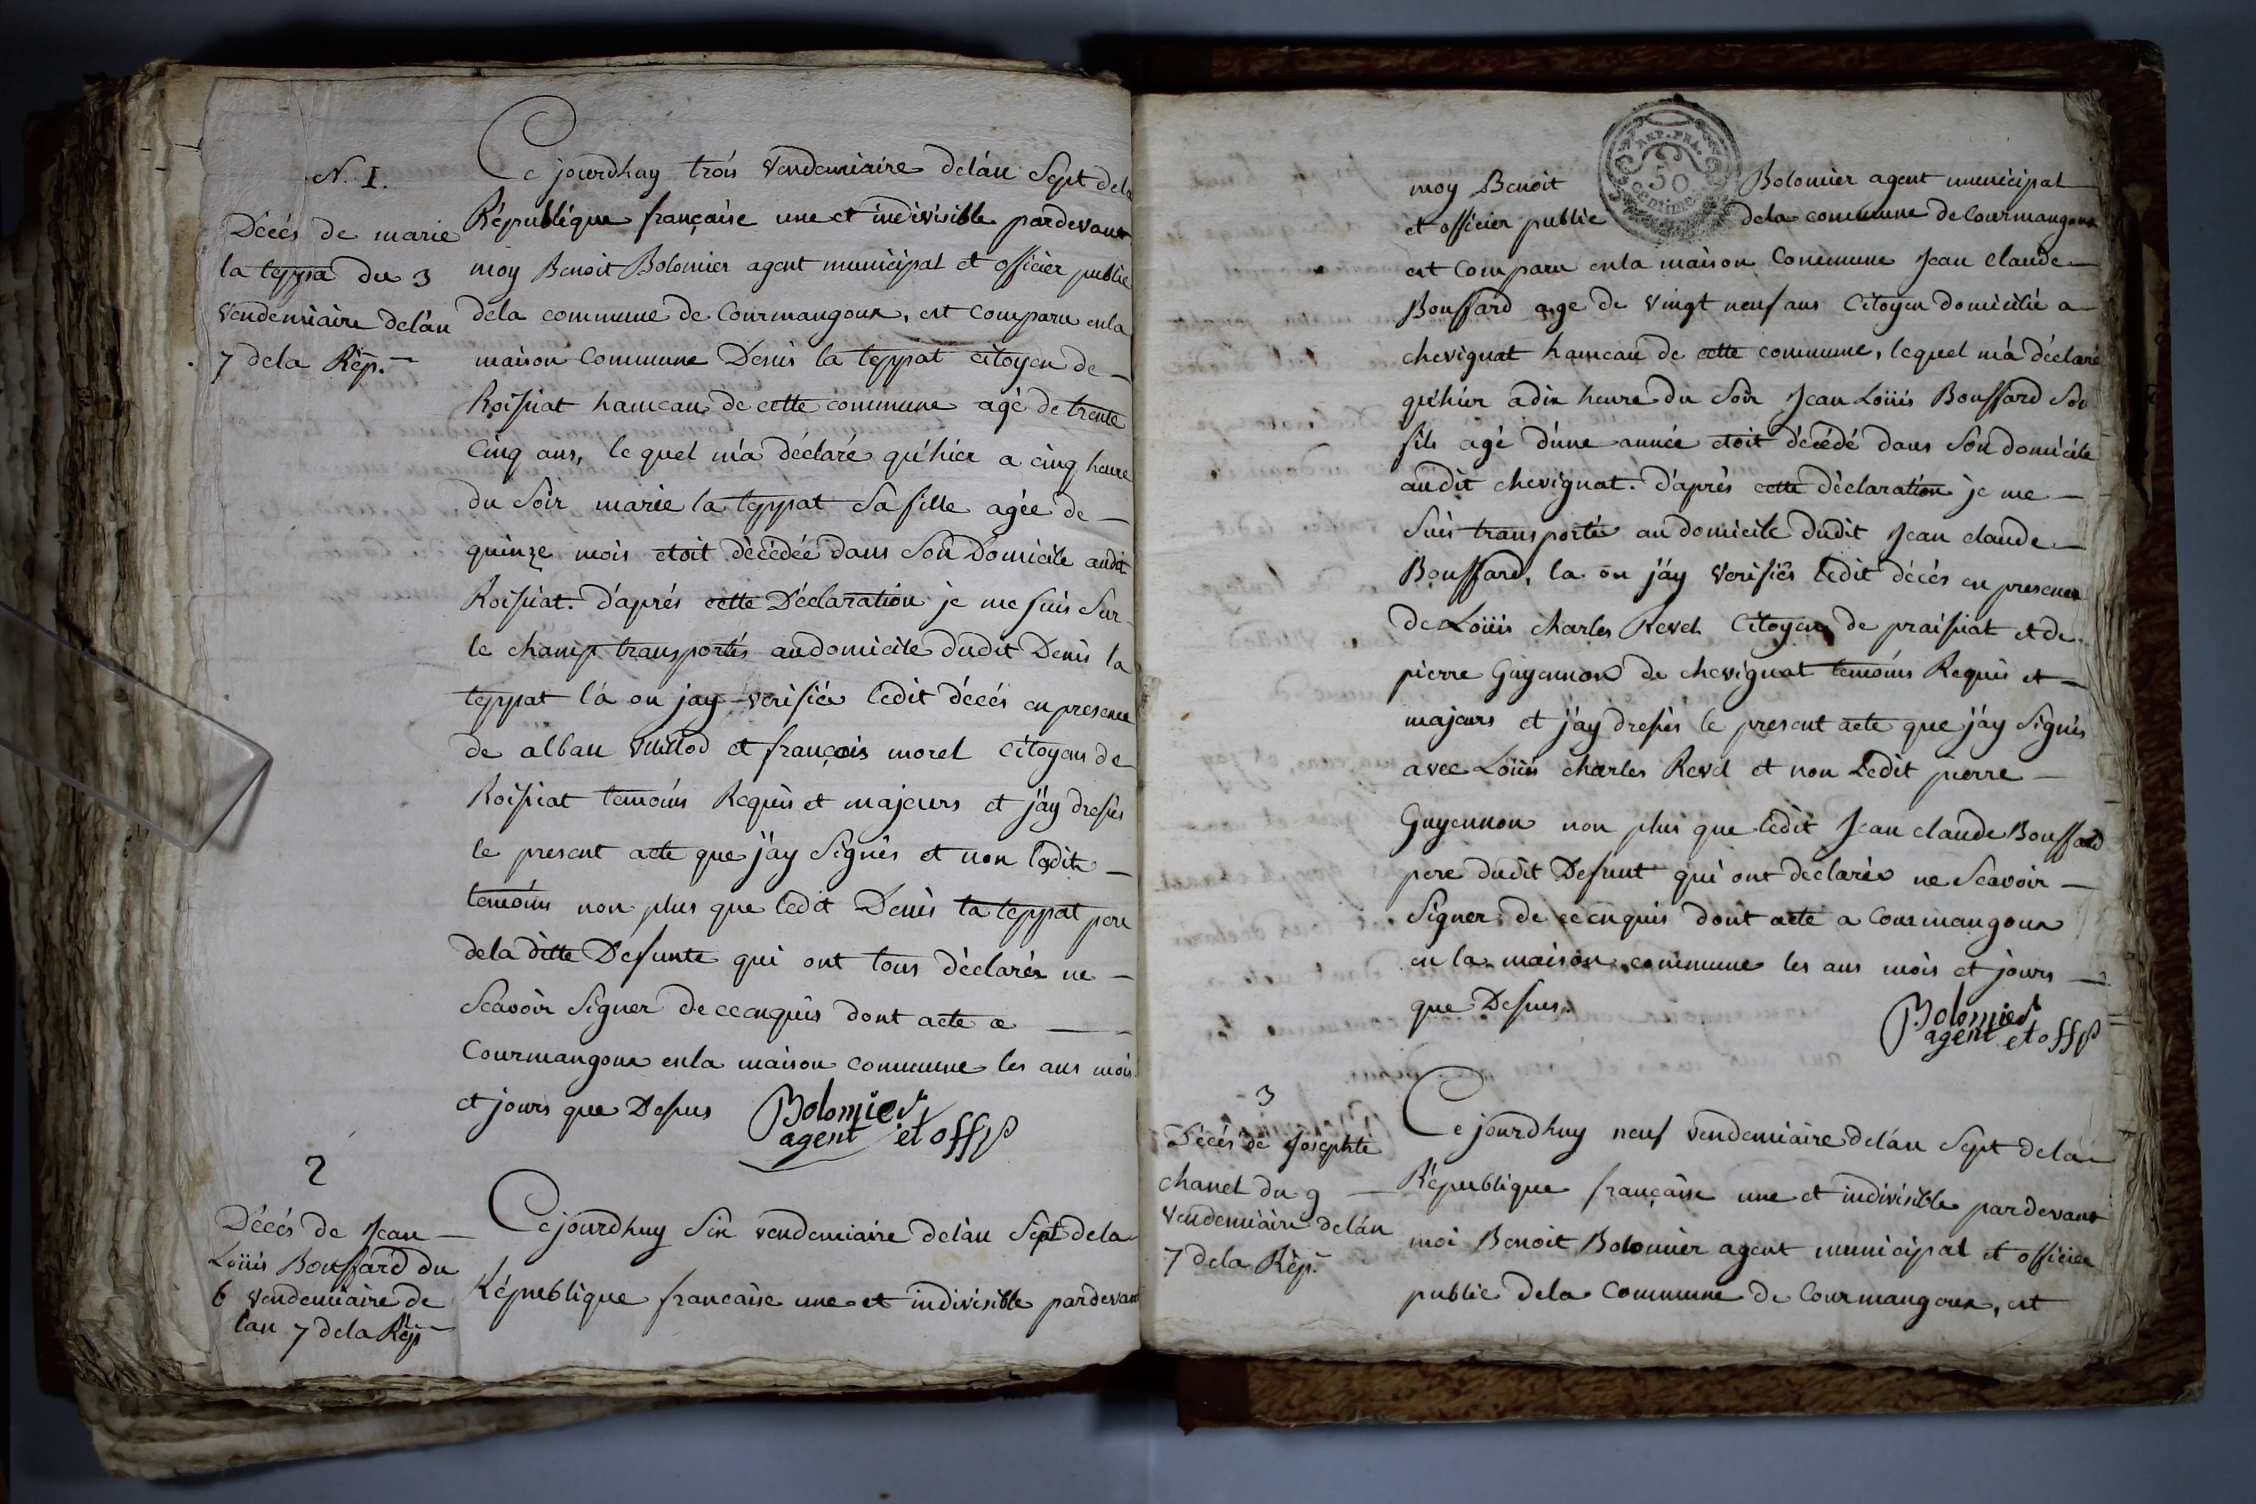 N. 1.
Décès de marie
la teppa du 3
vendemiaire delàn
7 dela Rep.
Ce jourdhuy trois vendemiaire delàn Sept dela
République française une et indivisible pardevant
moy Benoit Bolomier agent municipal et officier public
dela commune de Courmangoux, est comparu enla
maison commune Denis la teppat citoyen de
Roissiat hameau de cette commune agé de trente
Cinq ans, lequel m'a déclaré qu'hier a cinq heure
du Soir marie la teppat Sa fille agée de
quinze mois etoit décédée dans Son Domicile audit
Roissiat. d'aprés cette Déclaration je me suis Sur
le champ transportés audomicile dudit Denis la
teppat là ou jay verifiée ledit décés en presence
de alban vuillod et françois morel citoyens de
Roissiat temoins Requis et majeurs et j'ay dressés
le present acte que j'ay Signés et non lesdits
temoins non plus que ledit Denis la teppat pere
dela ditte Defunte qui ont tous déclarés ne
Scavoir Signer de ce enquis dont acte a
Courmangoux enla maison commune les ans mois
et jours que Dessus
Bolomier
agent et off p
2
Décés de Jean
Loüis Bouffard du
6 vendemiaire de
lan 7 dela Rep
Cejourdhuy Six vendemiaire delàn Sept dela
République française une et indivisible pardevant
REP. FRA.
50
centime
moy Benoit Bolomier agent municipal
et officier public dela commune de Courmangoux
est comparu enla maison Commune Jean Claude
Bouffard age de vingt neuf ans Citoyen domicilié a
chevignat hameau de cette commune, lequel m'a déclaré
qu'hier a dix heure du Soir Jean Loüis Bouffard Son
fils agé d'une année etoit décédé dans Son domicile
audit chevignat. d'aprés cette déclaration je me
Suis transporté au domicile dudit Jean claude
Bouffard, la ou j'ay verifiés ledit décés en presence
de Loüis charles Revel Citoyen de praissiat et de
pierre Guyennon de chevignat temoins Requis et
majeurs et j'ay dressés le present acte que j'ay Signés
avec Loüis charles Revel et non Ledit pierre
Guyennon non plus que ledit Jean claude Bouffard
pere dudit Defunt qui ont declarés ne Scavoir
Signer de ce enquis dont acte a Courmangoux
en la maison commune les ans mois et jours
que Dessus.
Bolomier
agent et off p
3
Décés de Josephte
chanel du 9
vendemiaire delàn
7 dela Rép.
Ce jourdhuy neuf vendemiaire delàn Sept dela
République française une et indivisible pardevant
moi Benoit Bolomier agent municipal et officier
public dela Commune de Courmangoux, est